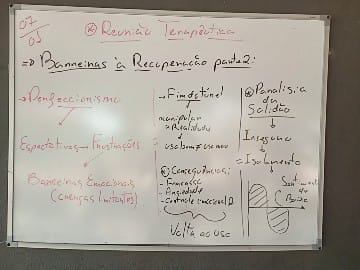 07/05
Reunião Terapêutica
=> Barreiras à Recuperação parte 2:
→ Perfeccionismo
Expectativas → Frustrações
Barreiras Emocionais
(crenças limitantes)
→ Fim do túnel
manipular
→ Realidade
Consequências:
- Fracasso
- Ansiedade
- Controle emocional
Volta ao uso
Paralisia
da
Solidão
Insegurança
= Isolamento
Sentimento
de
Baixa